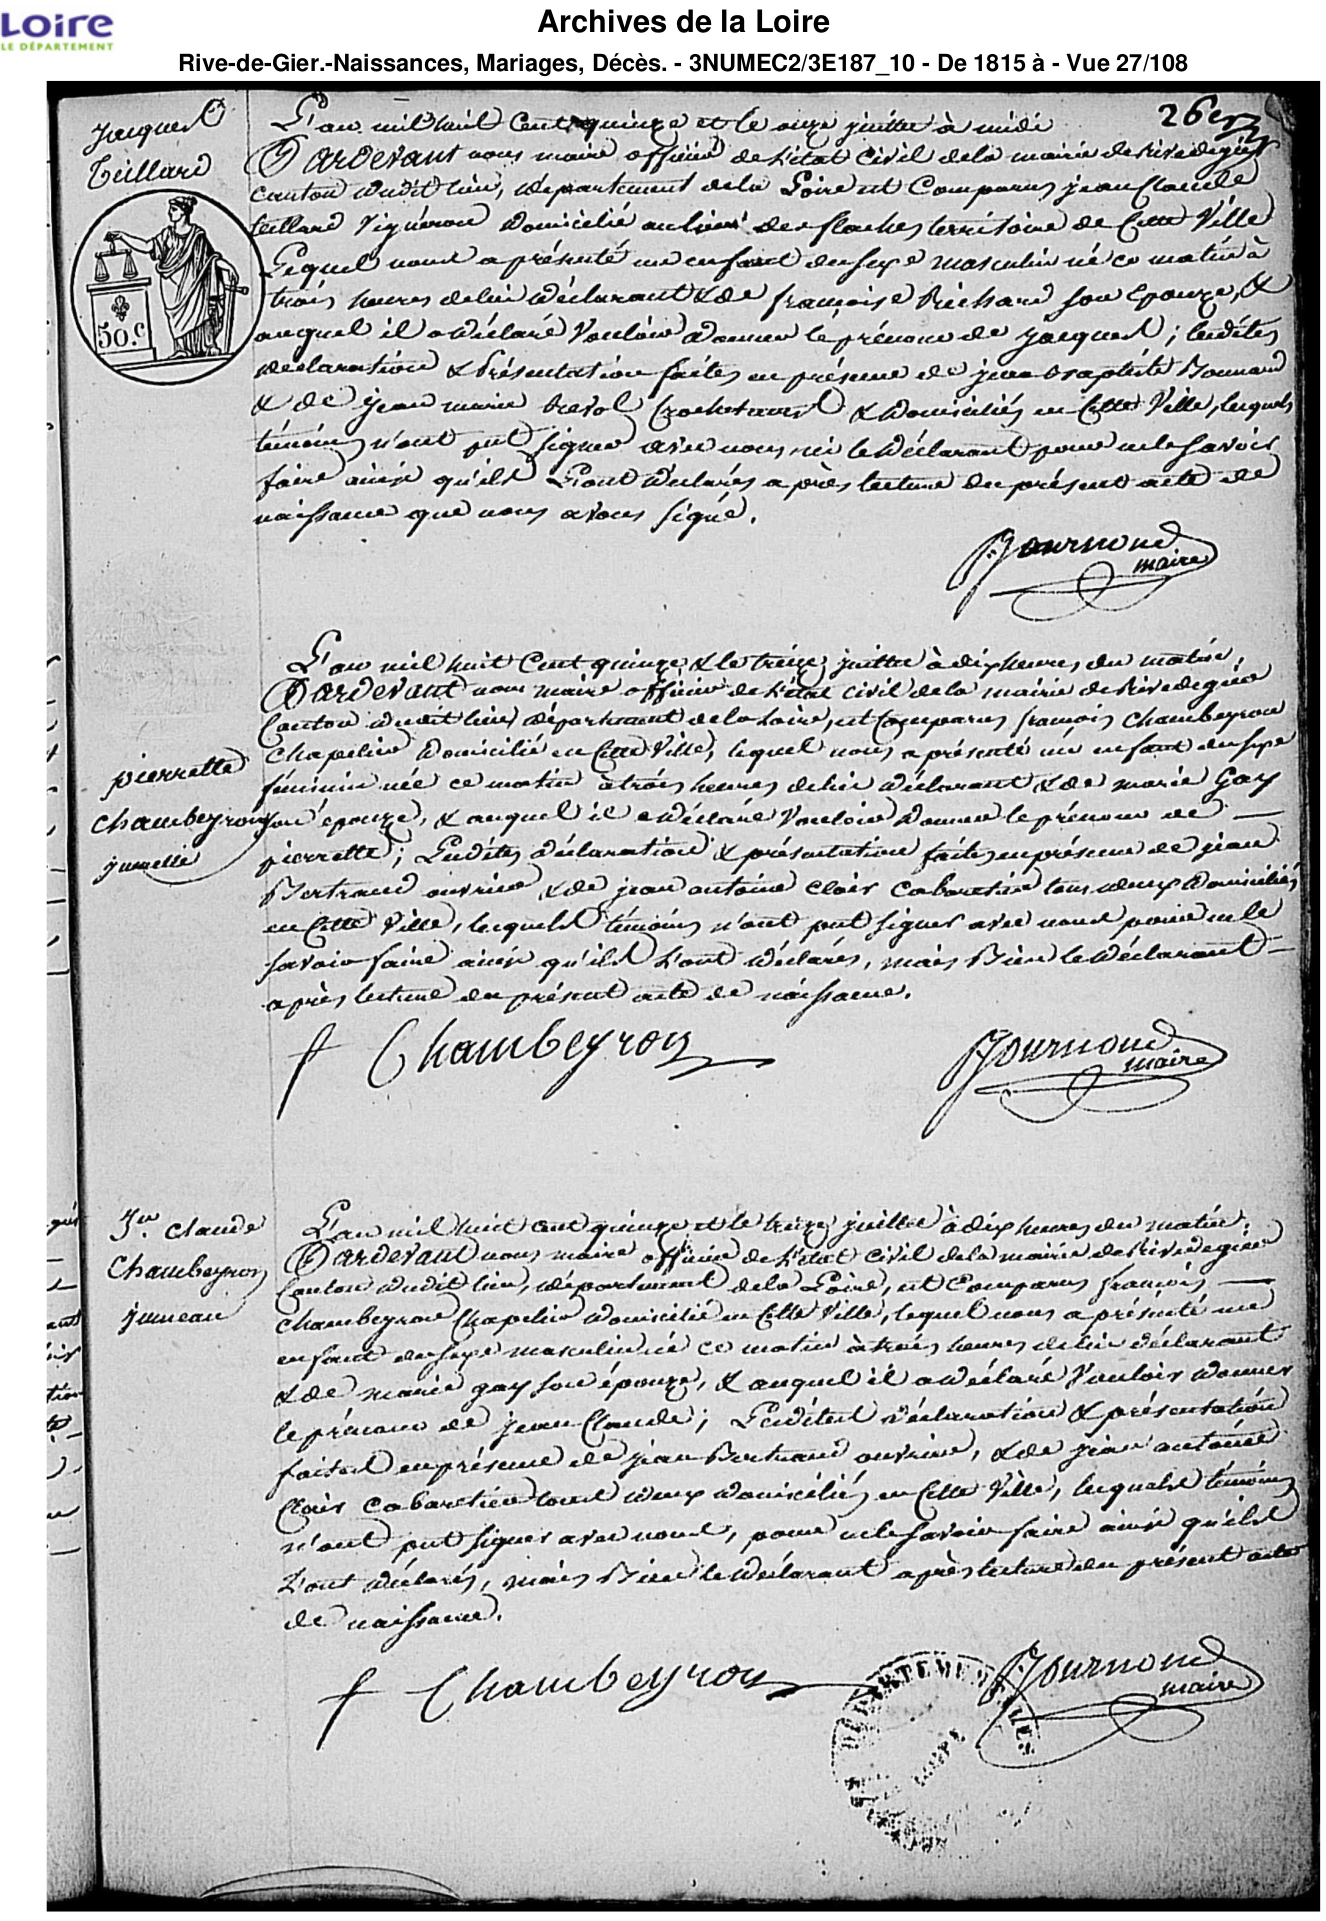 Loire
LE DÉPARTEMENT
Archives de la Loire
Rive-de-Gier.-Naissances, Mariages, Décès. - 3NUMEC2/3E187_10 - De 1815 à - Vue 27/108
26
jacques
Teillard
50.c
L'an mil huit cent quinze et le onze juillet à midi
Pardevant nous maire officier de l'état civil de la mairie de Rivedegier
canton dudit lieu, département de la Loire est comparus jean Claude
teillard Vigneron domicilié au lieu des flaches territoire de cette Ville
Lequel nous a présenté un enfant du sexe masculin né ce matin à
trois heures de lui déclarant & de françoise Richard son épouze, &
auquel il a déclaré Vouloir donner le prénom de jacques ; lesdites
déclaration & Présentation faites en présence de jean Baptiste Bonnard
& de jean marie trevol crocheteurs & domiciliés en cette Ville, lesquels
témoins n'ont put signer avec nous ni le déclarant pour ne le savoir
faire ainsy qu'ils L'ont déclarés après lecture du présent acte de
naissance que nous avons signé.
Journoud
maire
pierrette
chambeyron
jumelle
L'an mil huit cent quinze & le treize juillet à dix heures du matin,
Pardevant nous maire officier de l'état civil de la mairie de Rivedegier
Canton dudit lieu, département de la Loire, est comparus françois chambeyron
chapelier domicilié en cette Ville, lequel nous a présenté un enfant du sexe
féminin née ce matin à trois heures de lui déclarant & de marie Gay
son épouze, & auquel il a déclaré Vouloir donner le prénom de
pierrette ; Lesdites déclaration & présentation faites en présence de jean
Bertrand ouvrier, & de jean antoine clair cabaretier tous deux domiciliés
en cette Ville, lesquels témoins n'ont put signer avec nous pour ne le
savoir faire ainsy qu'ils L'ont déclarés, mais Bien le déclarant
après lecture du présent acte de naissance.
f Chambeyron
Journoud
maire
Jn. claude
Chambeyron
jumeau
L'an mil huit cent quinze et le treize juillet à dix heures du matin,
Pardevant nous maire officier de l'état civil de la mairie de Rivedegier
Canton dudit lieu, département de la Loire, est comparus françois
chambeyron Chapelier domicilié en cette Ville, lequel nous a présenté un
enfant du sexe masculin né ce matin à trois heures de lui déclarant
& de marie gay son épouze, & auquel il a déclaré Vouloir donner
le prénom de jean Claude ; Lesdites déclaration & présentation
faites en présence de jean Bertrand ouvrier, & de jean antoine
Clair cabaretier tous deux domiciliés en cette Ville, lesquels témoins
n'ont put signer avec nous, pour ne le savoir faire ainsy qu'ils
L'ont déclarés, mais Bien le déclarant après lecture du présent acte
de naissance.
f Chambeyron
Journoud
maire